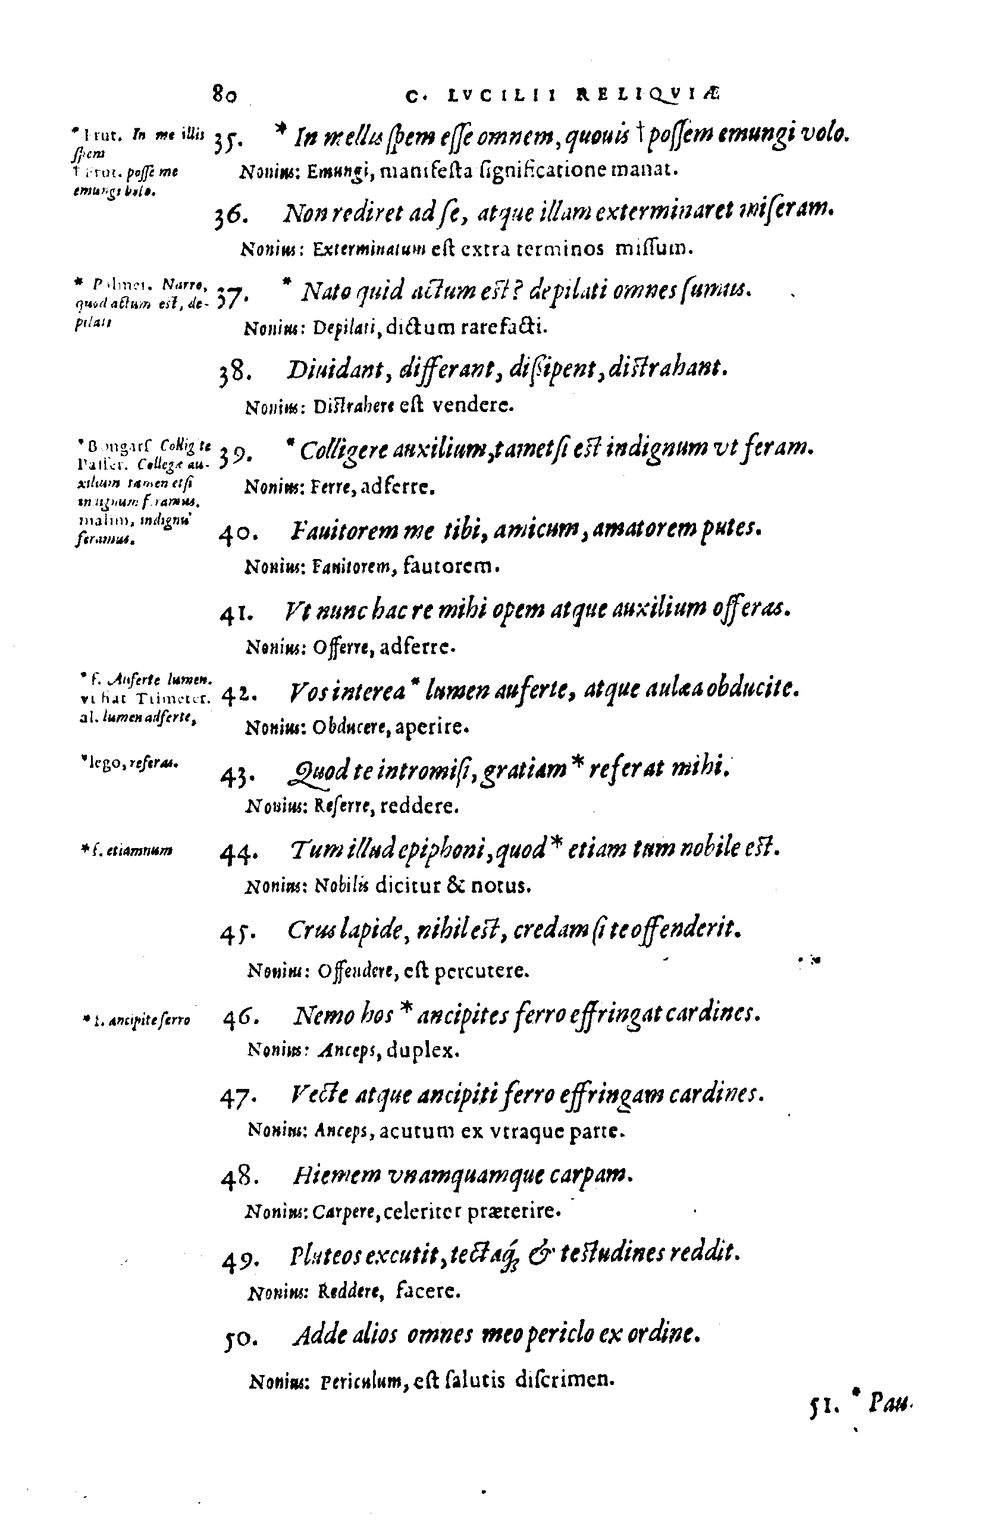 80 C. LVCILII RELIQVIÆ
* Frut. In me illis
ſpem
† Frut. poſſe me
emungi bolo.
35. * In me illis ſpem eſſe omnem, quouis † poſſem emungi volo.
Nonius: Emungi, manifeſta ſignificatione manat.
36. Non rediret ad ſe, atque illam exterminaret miſeram.
Nonius: Exterminatum eſt extra terminos miſſum.
* Palmer. Narro,
quod actum est, de-
pilati
37. * Nato quid actum est? depilati omnes ſumus.
Nonius: Depilati, dictum rarefacti.
38. Diuidant, differant, diſsipent, distrahant.
Nonius: Distrahere eſt vendere.
* Bongarſ. Collig te
Paſſer. Collegæ au-
xilium tamen etſi
indignum feramus,
malim, indignū
feramus.
39. * Colligere auxilium, tametſi est indignum vt feram.
Nonius: Ferre, adferre.
40. Fauitorem me tibi, amicum, amatorem putes.
Nonius: Fauitorem, fautorem.
41. Vt nunc hac re mihi opem atque auxilium offeras.
Nonius: Offerre, adferre.
* f. Auferte lumen.
vt fiat Trimeter.
al. lumen adferte,
42. Vos interea * lumen auferte, atque aulæa obducite.
Nonius: Obducere, aperire.
* lego, referas.
43. Quod te intromiſi, gratiam * referat mihi.
Nonius: Referre, reddere.
* f. etiamnum
44. Tum illud epiphoni, quod * etiam tum nobile est.
Nonius: Nobilis dicitur & notus.
45. Crus lapide, nihil est, credam ſi te offenderit.
Nonius: Offendere, eſt percutere.
* l. ancipite ferro
46. Nemo hos * ancipites ferro effringat cardines.
Nonius: Anceps, duplex.
47. Vecte atque ancipiti ferro effringam cardines.
Nonius: Anceps, acutum ex vtraque parte.
48. Hiemem vnamquamque carpam.
Nonius: Carpere, celeriter præterire.
49. Pluteos excutit, tectaq́; & testudines reddit.
Nonius: Reddere, facere.
50. Adde alios omnes meo periclo ex ordine.
Nonius: Periculum, eſt ſalutis diſcrimen.
51. * Pau-